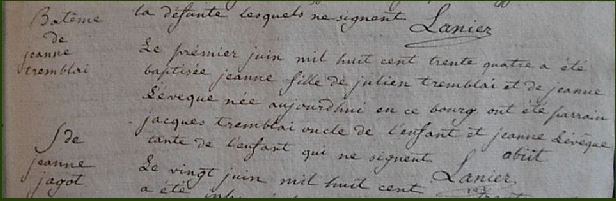 la défunte lesquels ne signent Lanier
Batême
de
jeanne
tremblai
Le premier juin mil huit cent trente quatre a été
baptisée jeanne fille de julien tremblai et de jeanne
Lévêque née aujourdhui en ce bourg ont été parrain
jacques tremblai oncle de l'enfant et jeanne Lévêque
tante de l'enfant qui ne signent obiit
Lanier
S de
jeanne
jagot
Le vingt juin mil huit cent
a été